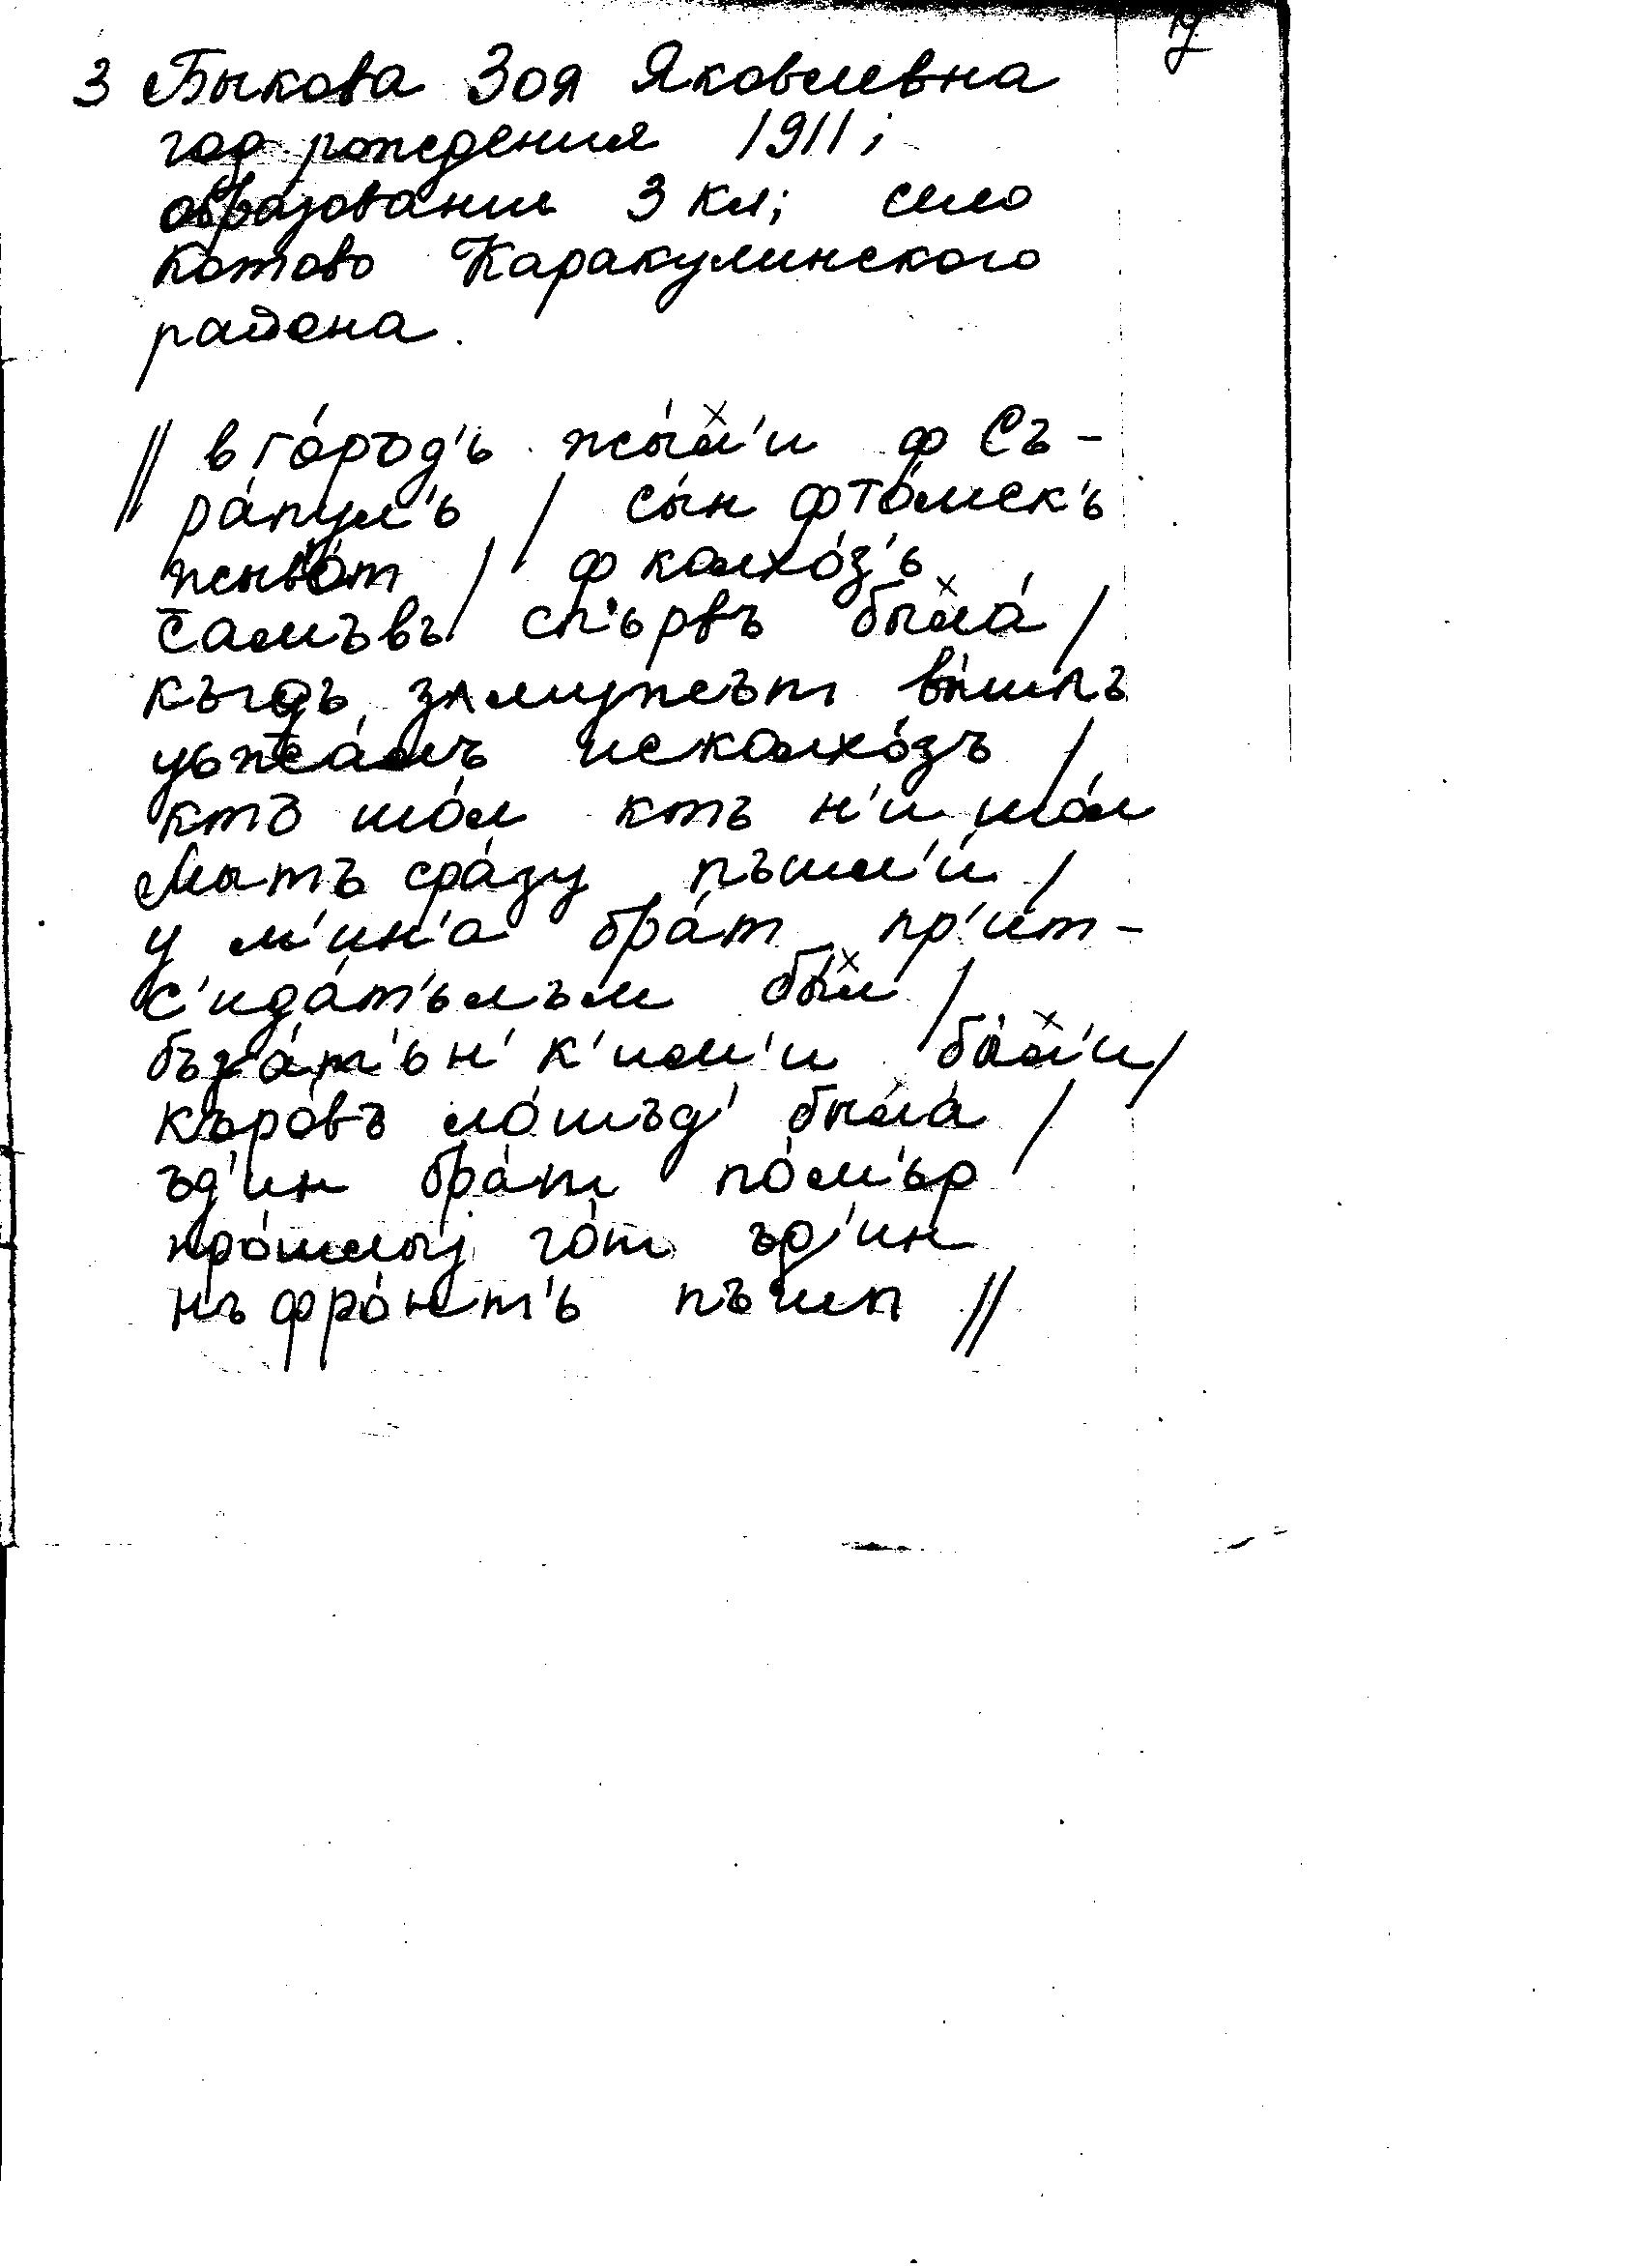 3 Быкова Зоя Яковлевна
год рождения 1911;
образование 3 кл; село
Котово Каракулинского
района.
// в го́род'ь жы́л'и ф Съ-
ра́пул'ь / сы́н фто́мск'ь
жыво́т / ф колхо́з'ь
самъвъ сп'ьрвъ была́ /
къгдъ злмужът вышлъ
уьжса́лъ исколхо́зъ /
ктъ шо́л ктъ н'и шо́л
мытъ сра́зу пъшл'и́ /
у м'ин'а бра́т пр'ит-
с'ида́т'ьлъм бы́л /
бъга́т'ьн'к'им'и бы́л'и /
към­ро́въ ло́шъд' была́ /
ъд'ин бра́т по́м'ьр
про́шлыј го́т ъд'ин
нъ фро́нт'ь пъ //